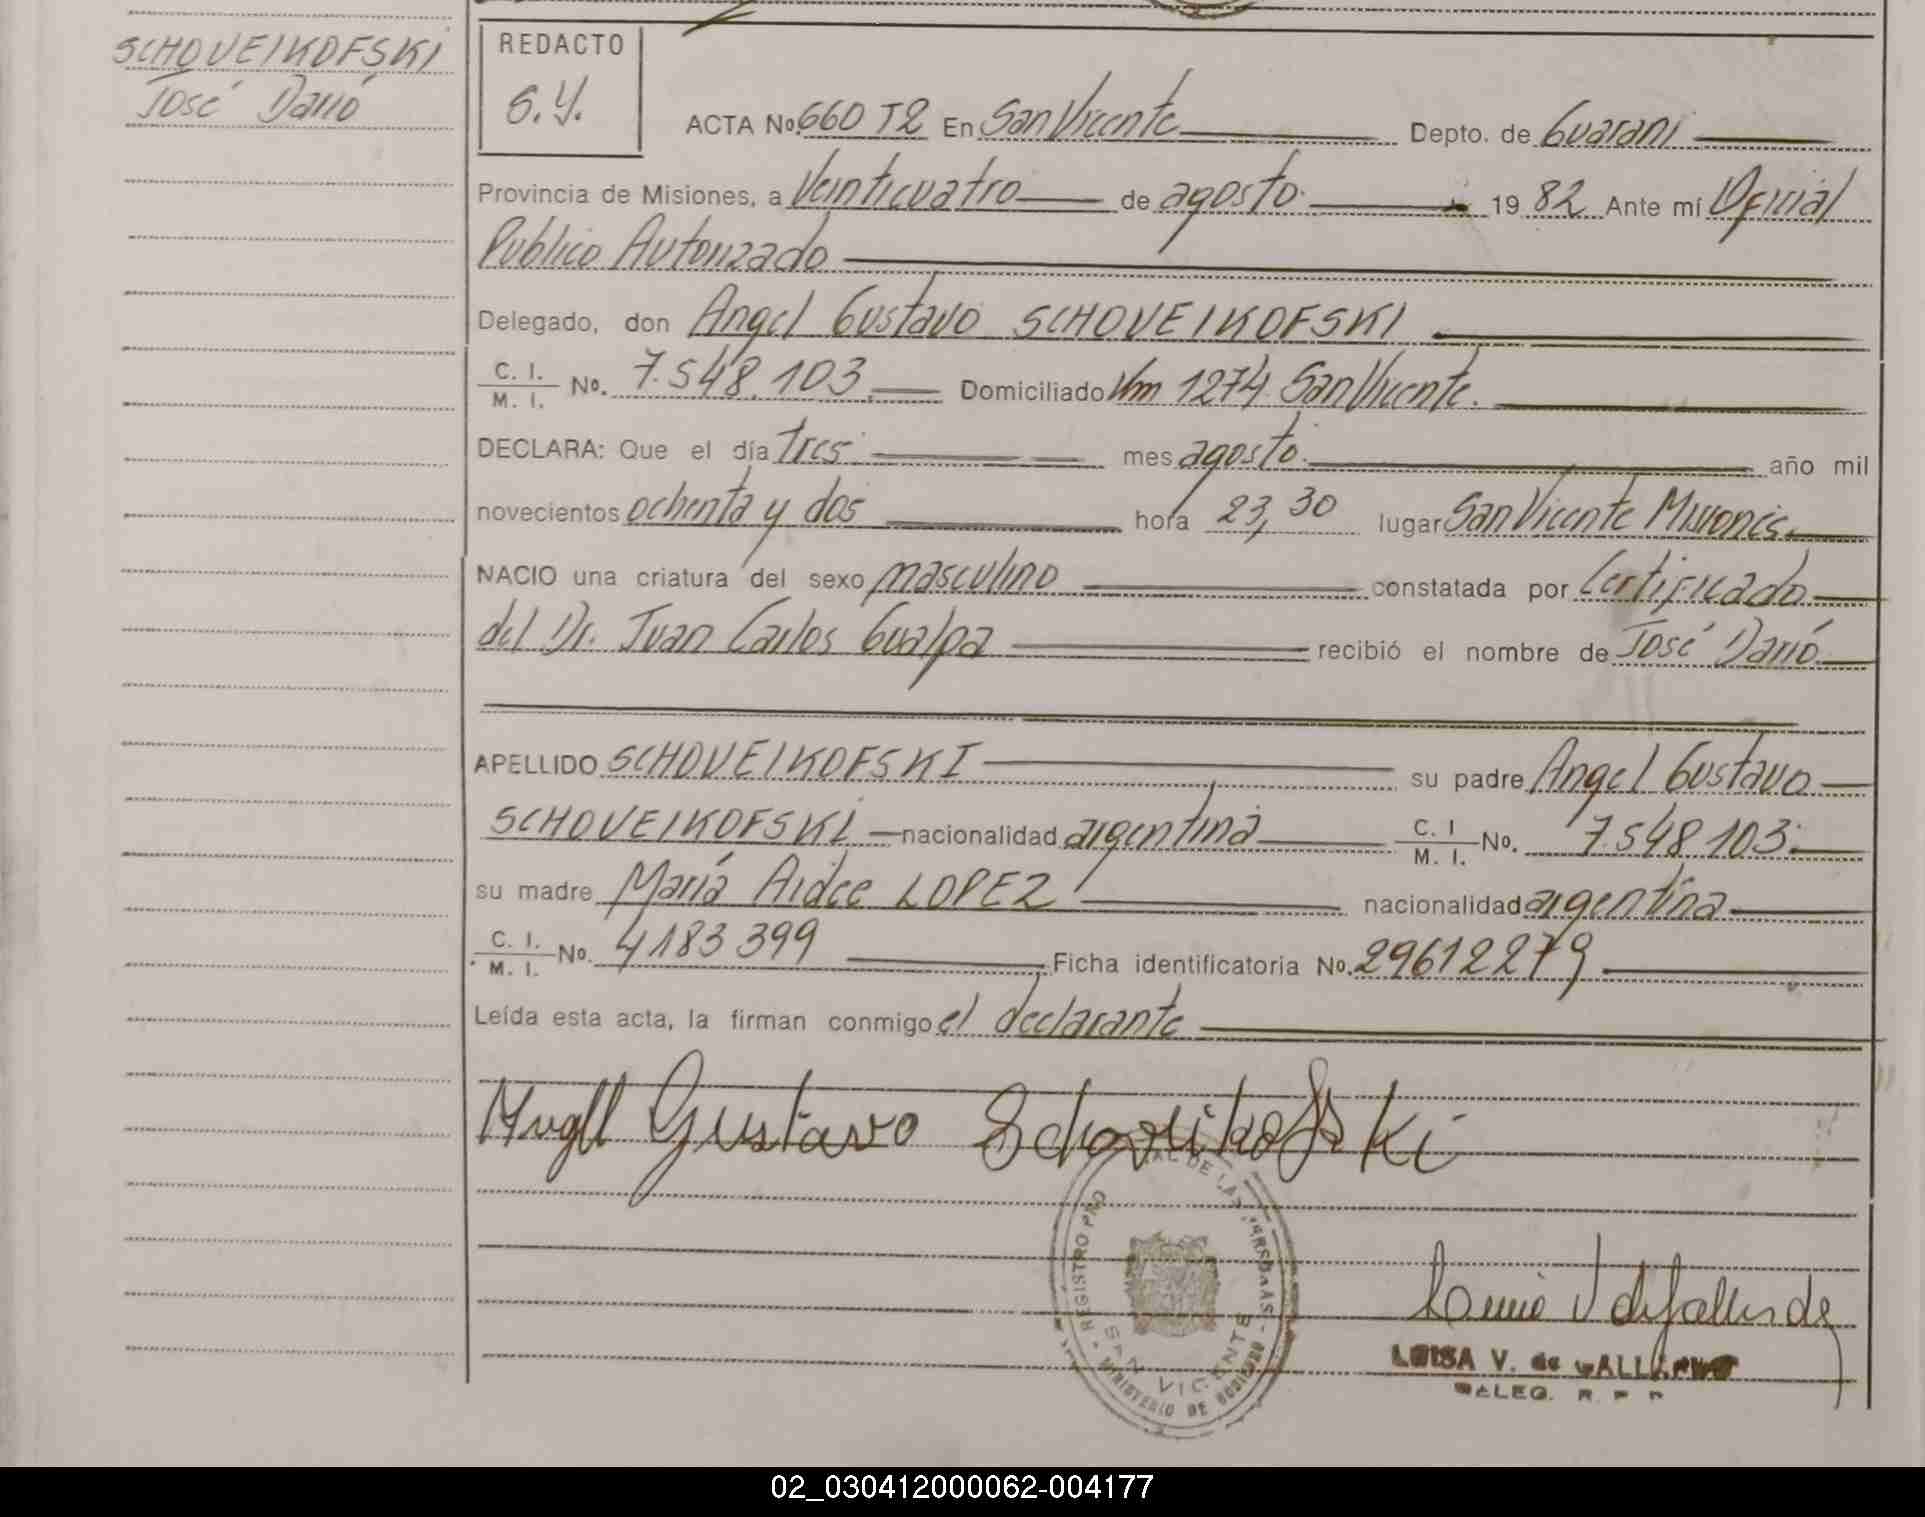 SCHOVEIKOFSKI
José Darío
REDACTO
S.Y.
ACTA No. 660 T2 En San Vicente Depto. de Guarani
Provincia de Misiones, a Veinticuatro de agosto 1982 Ante mí Oficial
Publico Autorizado
Delegado, don Angel Gustavo SCHOVEIKOFSKI
C. I. / M. I. No. 7.548.103. Domiciliado Km 1274 San Vicente.
DECLARA: Que el día tres mes agosto. año mil
novecientos ochenta y dos hora 23,30 lugar San Vicente Misiones
NACIO una criatura del sexo masculino constatada por Certificado
del Dr. Juan Carlos Gualpa recibió el nombre de José Darío
APELLIDO SCHOVEIKOFSKI su padre Angel Gustavo
SCHOVEIKOFSKI nacionalidad argentina C. I / M. I. No. 7.548.103.
su madre María Aidee LOPEZ nacionalidad argentina
C. I. / M. I. No. 4183399 Ficha identificatoria No. 29612279
Leída esta acta, la firman conmigo el declarante
Angel Gustavo Schoveikofski
REGISTRO DE LAS PERSONAS
MINISTERIO DE GOBIERNO
SAN VICENTE
LUISA V. de GALLARDO
DELEG. R. P P
02_030412000062-004177